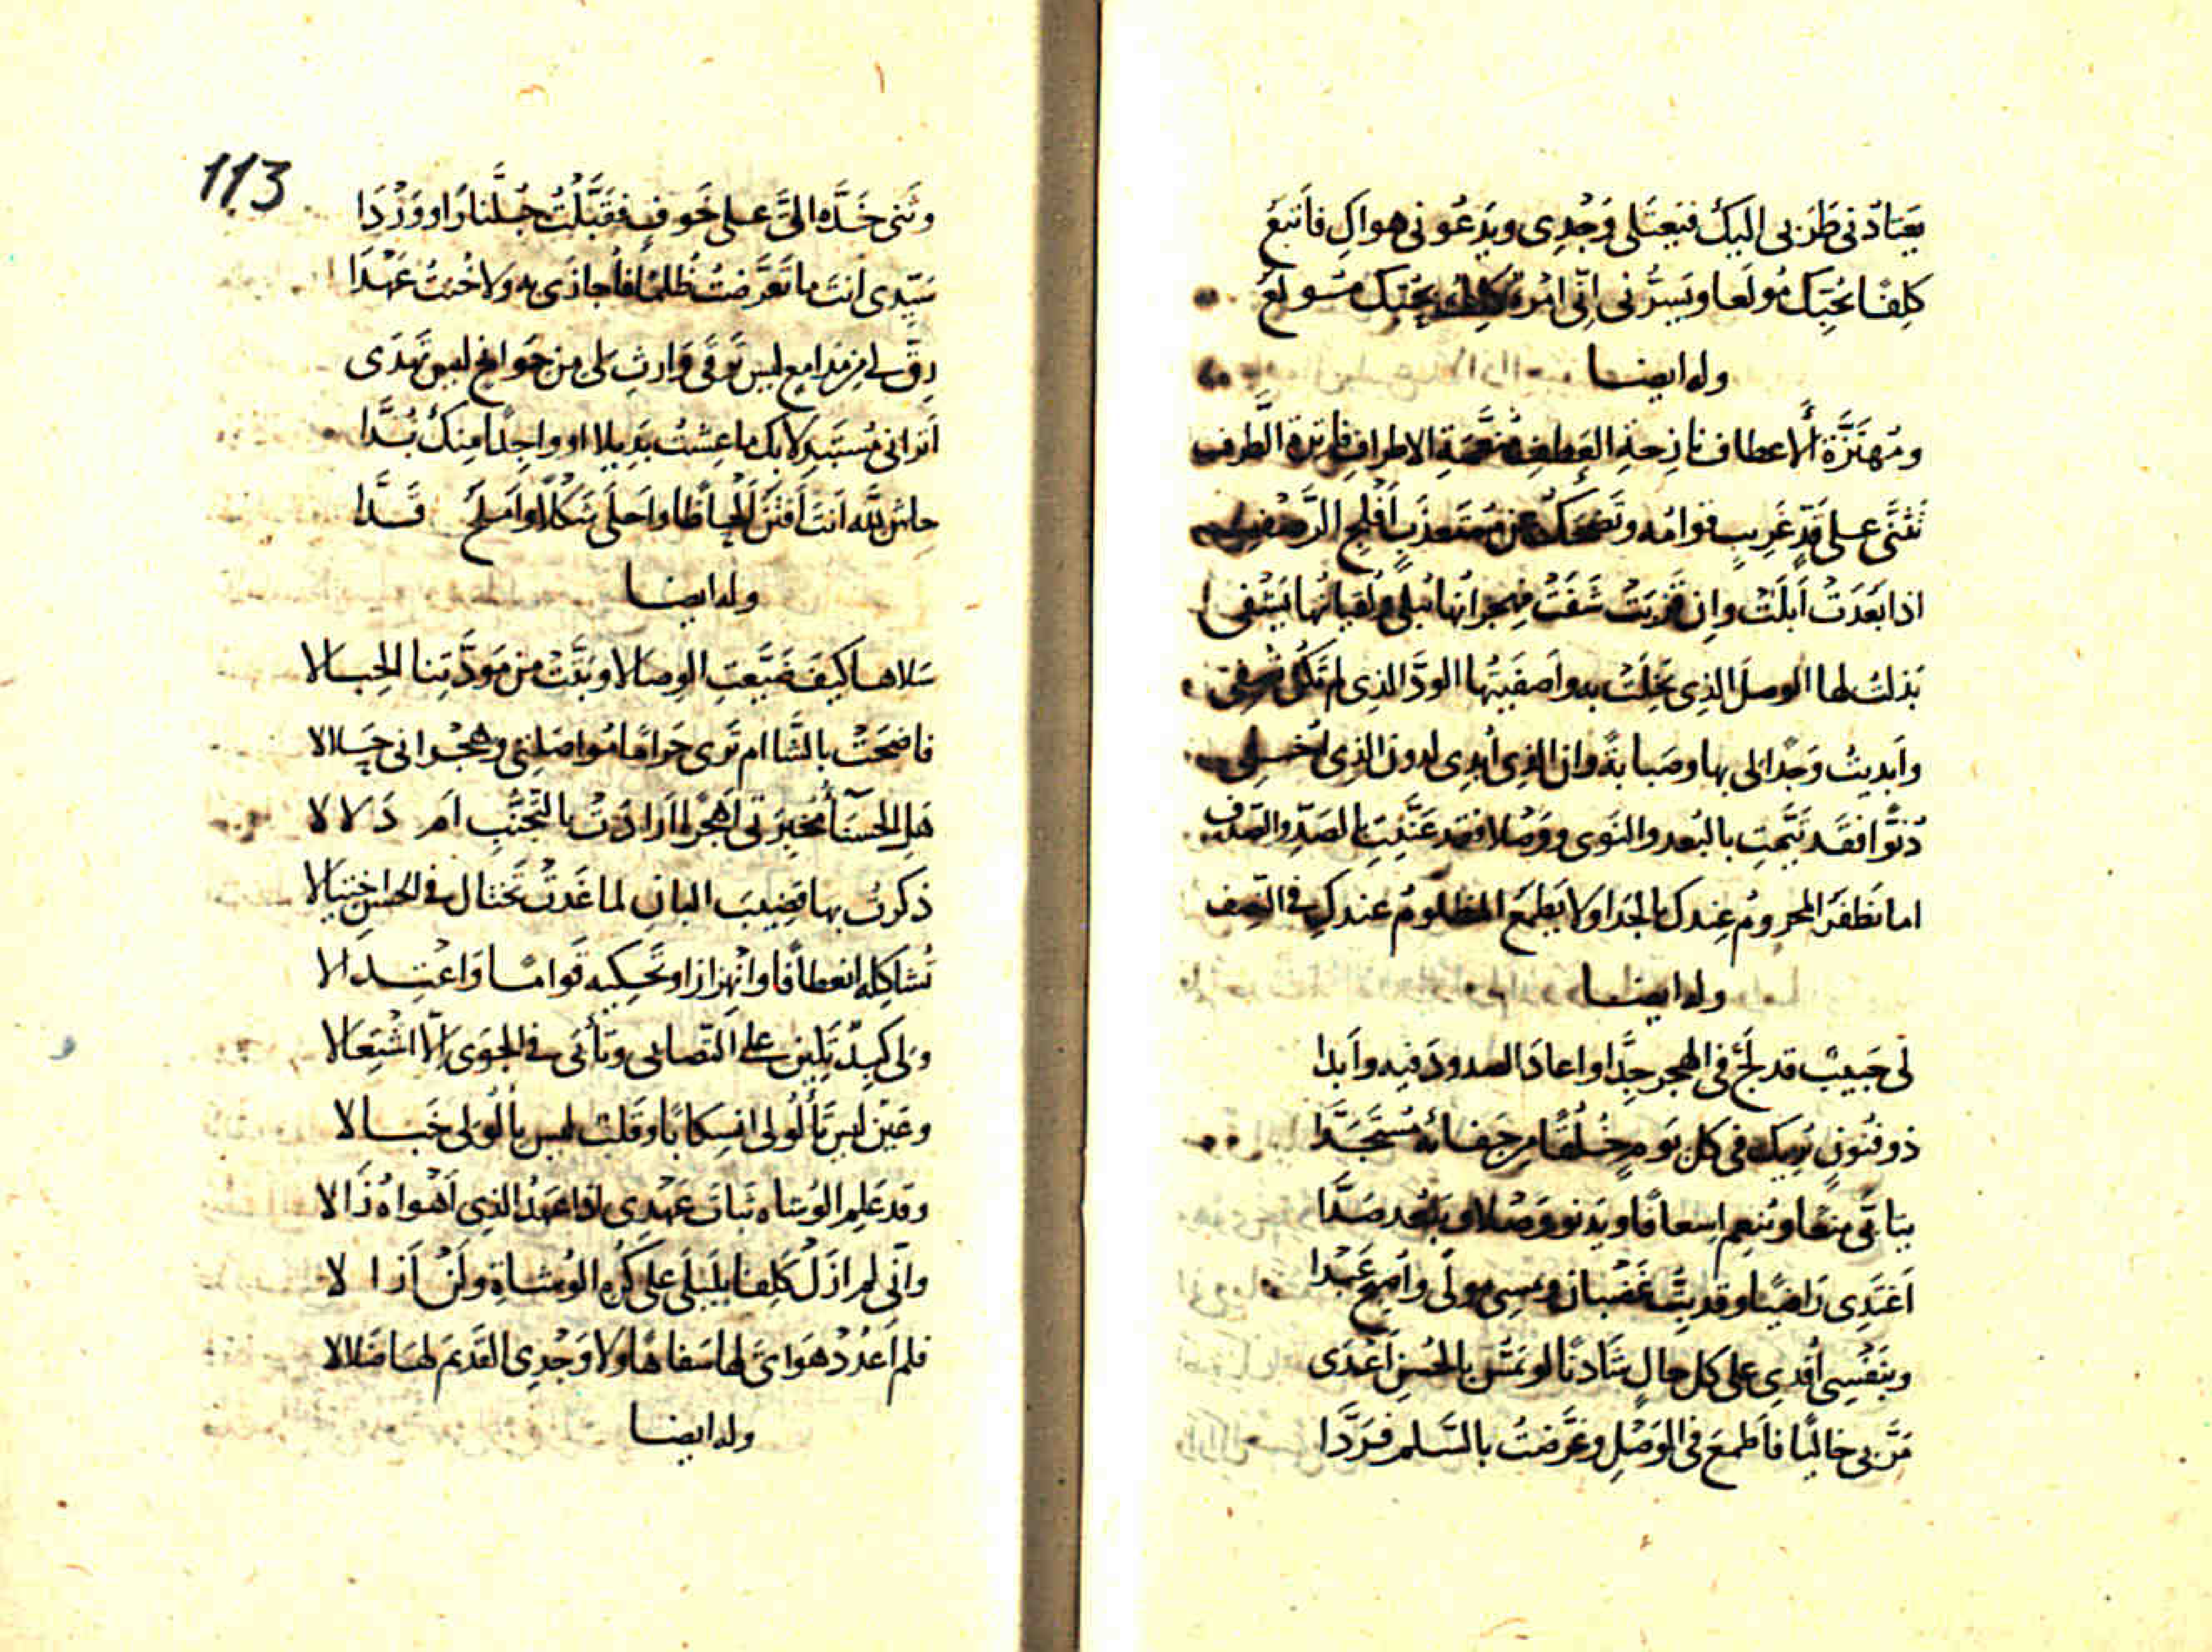 يَعتادُني طَرَبي اليكَ فيَعتَلي وَجْدِي ويَدعُوني هواكِ فأتبعُ
كلِفًا بحُبِّكَ مُولَعا ويَسرُّني انّي امْرؤ كلِفٌ بحُبّك مُولعُ
وله ايضا
ومُهتَزَّة الأعطاف نازِحةِ العِطفِ مُنعَّمَةِ الاطرافِ فاترة الطَّرف
تَثَنَّى على قَدٍّ غَرِيبٍ قوامُه وتَضحَكُ عن مُستَعذَبٍ أَفلجِ الرَّصفِ
اذا بَعُدَتْ أَبلَتْ وإن قَرُبَتْ شَفَتْ فهِجرانُها يُبلي ولُقيانُها يَشْفي
بَذلتُ لها الوصلَ الذِي بَخِلَتْ به وأَصفَيتُها الودَّ الذِي لم تَكُن تُصفي
وأبديتُ وَجدًا لي بها وصَبابةً وان الذي أُبدِي لدون الذي أُخفي
دُنوًّا فقَد تَيَّمتِ بالبُعد والنَوى ووَصْلا فقد عَنَّيتِ بالصَدِّ والصَدفِ
اما يَظفَرُ المحرومُ عِندكِ بالجَدا ولا يَطمَع المظلومُ عندكِ في النِصف
وله ايضا
لي حَبيبٌ قد لَجَّ في الهجر جِدَّا واعادَ الصدودَ فيه وأبدا
ذو فُنُونٍ يُريك في كل يَومٍ خُلُقًا من جَفائه مُستَجَدَّا
يتابّى مَنعًا ويُنعِم إسعافًا ويَدنو وَصْلا ويَبْعُد صَدَّا
أغتَدِي راضيًا وقد بِتُّ غَضبانَ وأمسِي مولًى وأُصبحُ عَبْدا
وبنَفْسِي أَفدِي على كل حالٍ شادنًا لو يُمَسُّ بالحُسنِ أعْدَى
مَرَّ بي خاليًا فأطمعَ في الوَصْلِ وعَرَّضتُ بالسَّلمِ فرَدَّا
113
وثَنى خَدَّه اليَّ على خَوفٍ فقَبَّلْتُ جُلَّنارًا ووَرْدَا
سَيِّدي أنتَ ما تَعَرَّضتُ ظُلمًا فأُجازَى به ولا خُنتُ عَهْدَا
رِقَّ لي من مَدامِع ليس تَرقَى وَارثِ لي من جَوانحٍ ليس تَهدَى
أتراني مُستَبدِلا بك ما عِشتُ بَديلا او واجِدًا منِكَ بُدَّا
حاش لله أنتَ أَفتَنُ أَلحاظا وأَحلَى شَكْلا وأَملحُ قَدَّا
وله ايضا
سَلاها كَيفَ ضَيَّعَتِ الوِصالا وبَتَّتْ من مَودَّتِنا الحِبالا
فاضحَتْ بالشَّاام تَرى حَرامًا مُواصَلتِي وهِجْراني حَلالا
هَل الحسنَآءُ مُخبِرَتي أَهَجْرًا أَرادَتْ بالتَجنُّبِ أم دَلالا
ذكرتُ بها قضِيبَ البانِ لما غَدتْ تَختال في الحسن اختيالا
تُشاكِله انعطافًا واهْتِزازا وتَحكِيه قَواما وَاعْتِدالا
ولي كبِدٌ تَلين على التَصابي وتأبَى في الجوَى إلّا اشْتِعالا
وعَينٌ ليسَ تَأْلُوني انسِكابًا وقَلبٌ ليس يألُوني خَبالا
وقد عَلِم الوُشاه ثَباتَ عَهدِي اذا عَهدُ الذِي أَهْواهُ زَالا
وانّي لم ازَلْ كَلِفا بلَيلَى على كُرْه الوُشاةِ ولَنْ أزالا
فلم أعدُدْ هَوايَ لها سَفاهًا ولا وَجْدِي القَديم لها ضَلالا
وله ايضا